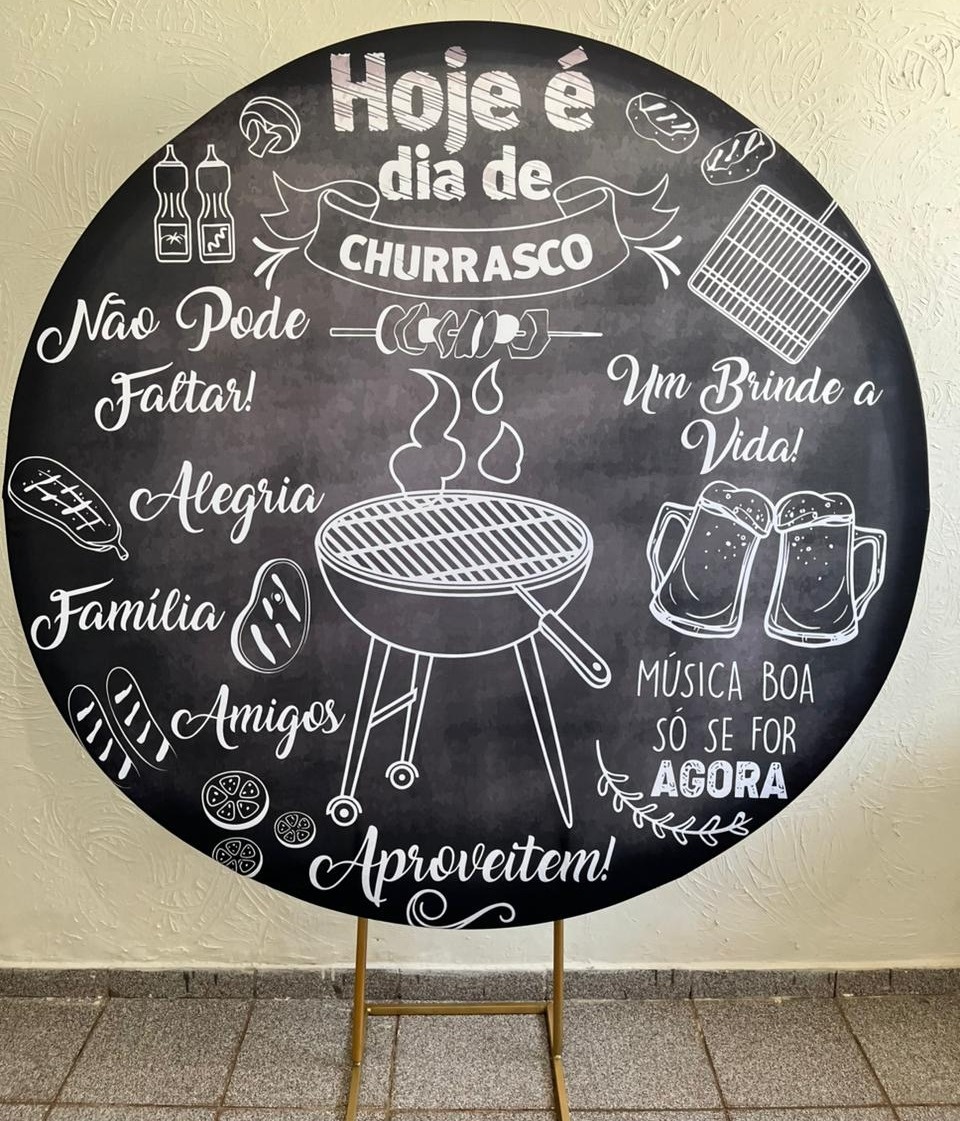 Hoje é
dia de
CHURRASCO
Não Pode
Faltar!
Alegria
Família
Amigos
Um Brinde a
Vida!
MÚSICA BOA
SÓ SE FOR
AGORA
Aproveitem!